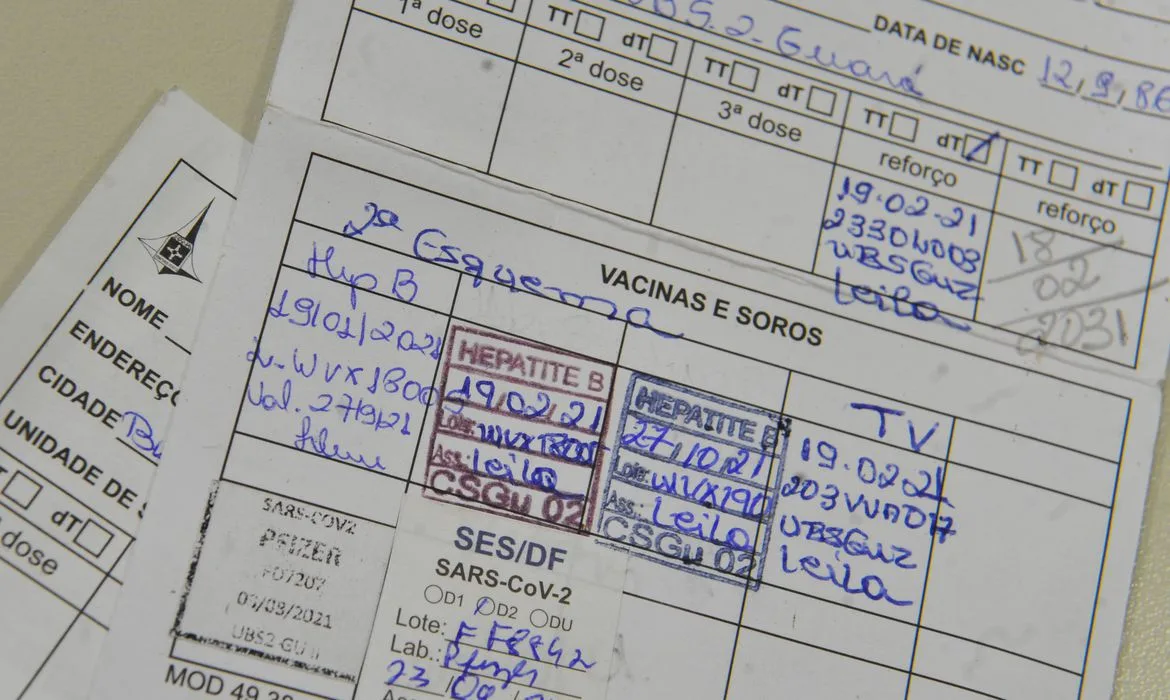 UBS.2-Guará
DATA DE NASC 12,9,86
1ª dose
TT dT
2ª dose
TT dT
3ª dose
TT dT
reforço
19.02-21
UBSGU2
Leila
TT dT
reforço
18
02
2031
VACINAS E SOROS
2ª Esquema
Hep B
19/01/2021
Val. 27/9/21
HEPATITE B
19/02/21
Lote:
Ass.: Leila
CSGu 02
HEPATITE B
27/10/21
Lote: WVX190
Ass.: Leila
CSGu 02
TV
19.02.21
UBSGU2
Leila
SARS-COV2
PFIZER
FD7207
03/08/2021
UBS2 GU II
SES/DF
SARS-CoV-2
D1 D2 DU
Lote: FF8842
Lab.: Pfizer
23
MOD 49.38
NOME
ENDEREÇO
CIDADE
UNIDADE DE S
dT
dose